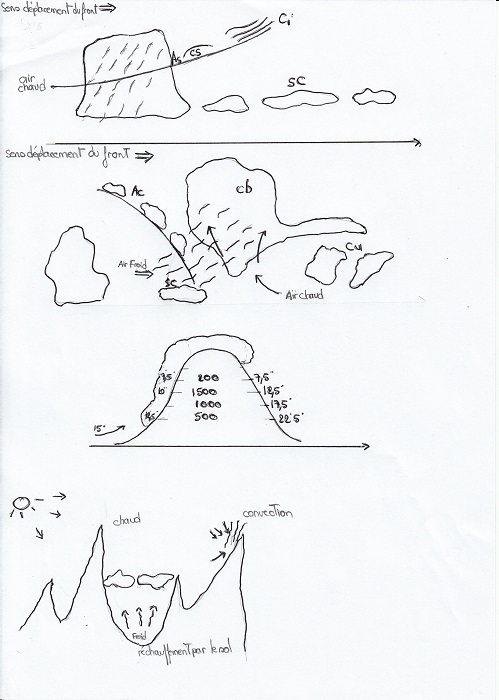 Sens déplacement du front ⇒
Ci
As
CS
air
chaud
SC
Sens déplacement du front ⇒
Ac
cb
Air Froid
SC
Cu
Air chaud
200 7,5°
10° 1500
1000 17,5°
500 22°5
15°
chaud
convection
Froid
réchauffement par le sol